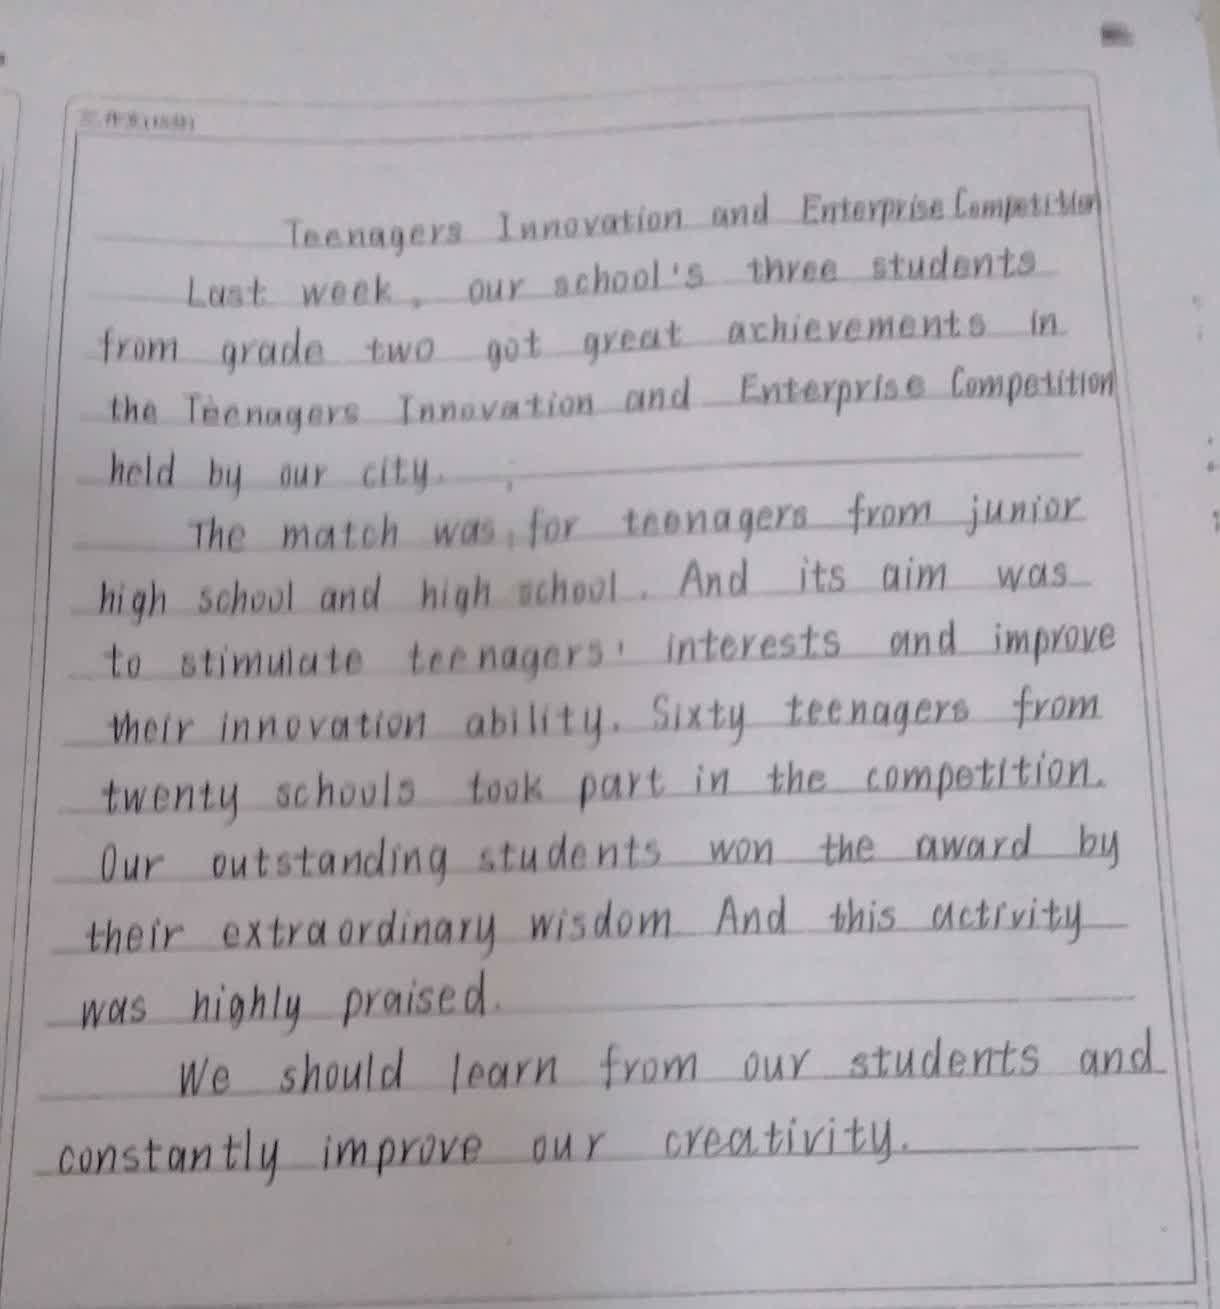 Teenagers Innovation and Enterprise Competition
Last week, our school's three students
from grade two got great achievements in
the Teenagers Innovation and Enterprise Competition
held by our city.
The match was for teenagers from junior
high school and high school. And its aim was
to stimulate teenagers' interests and improve
their innovation ability. Sixty teenagers from
twenty schools took part in the competition.
Our outstanding students won the award by
their extraordinary wisdom And this activity
was highly praised.
We should learn from our students and
constantly improve our creativity.